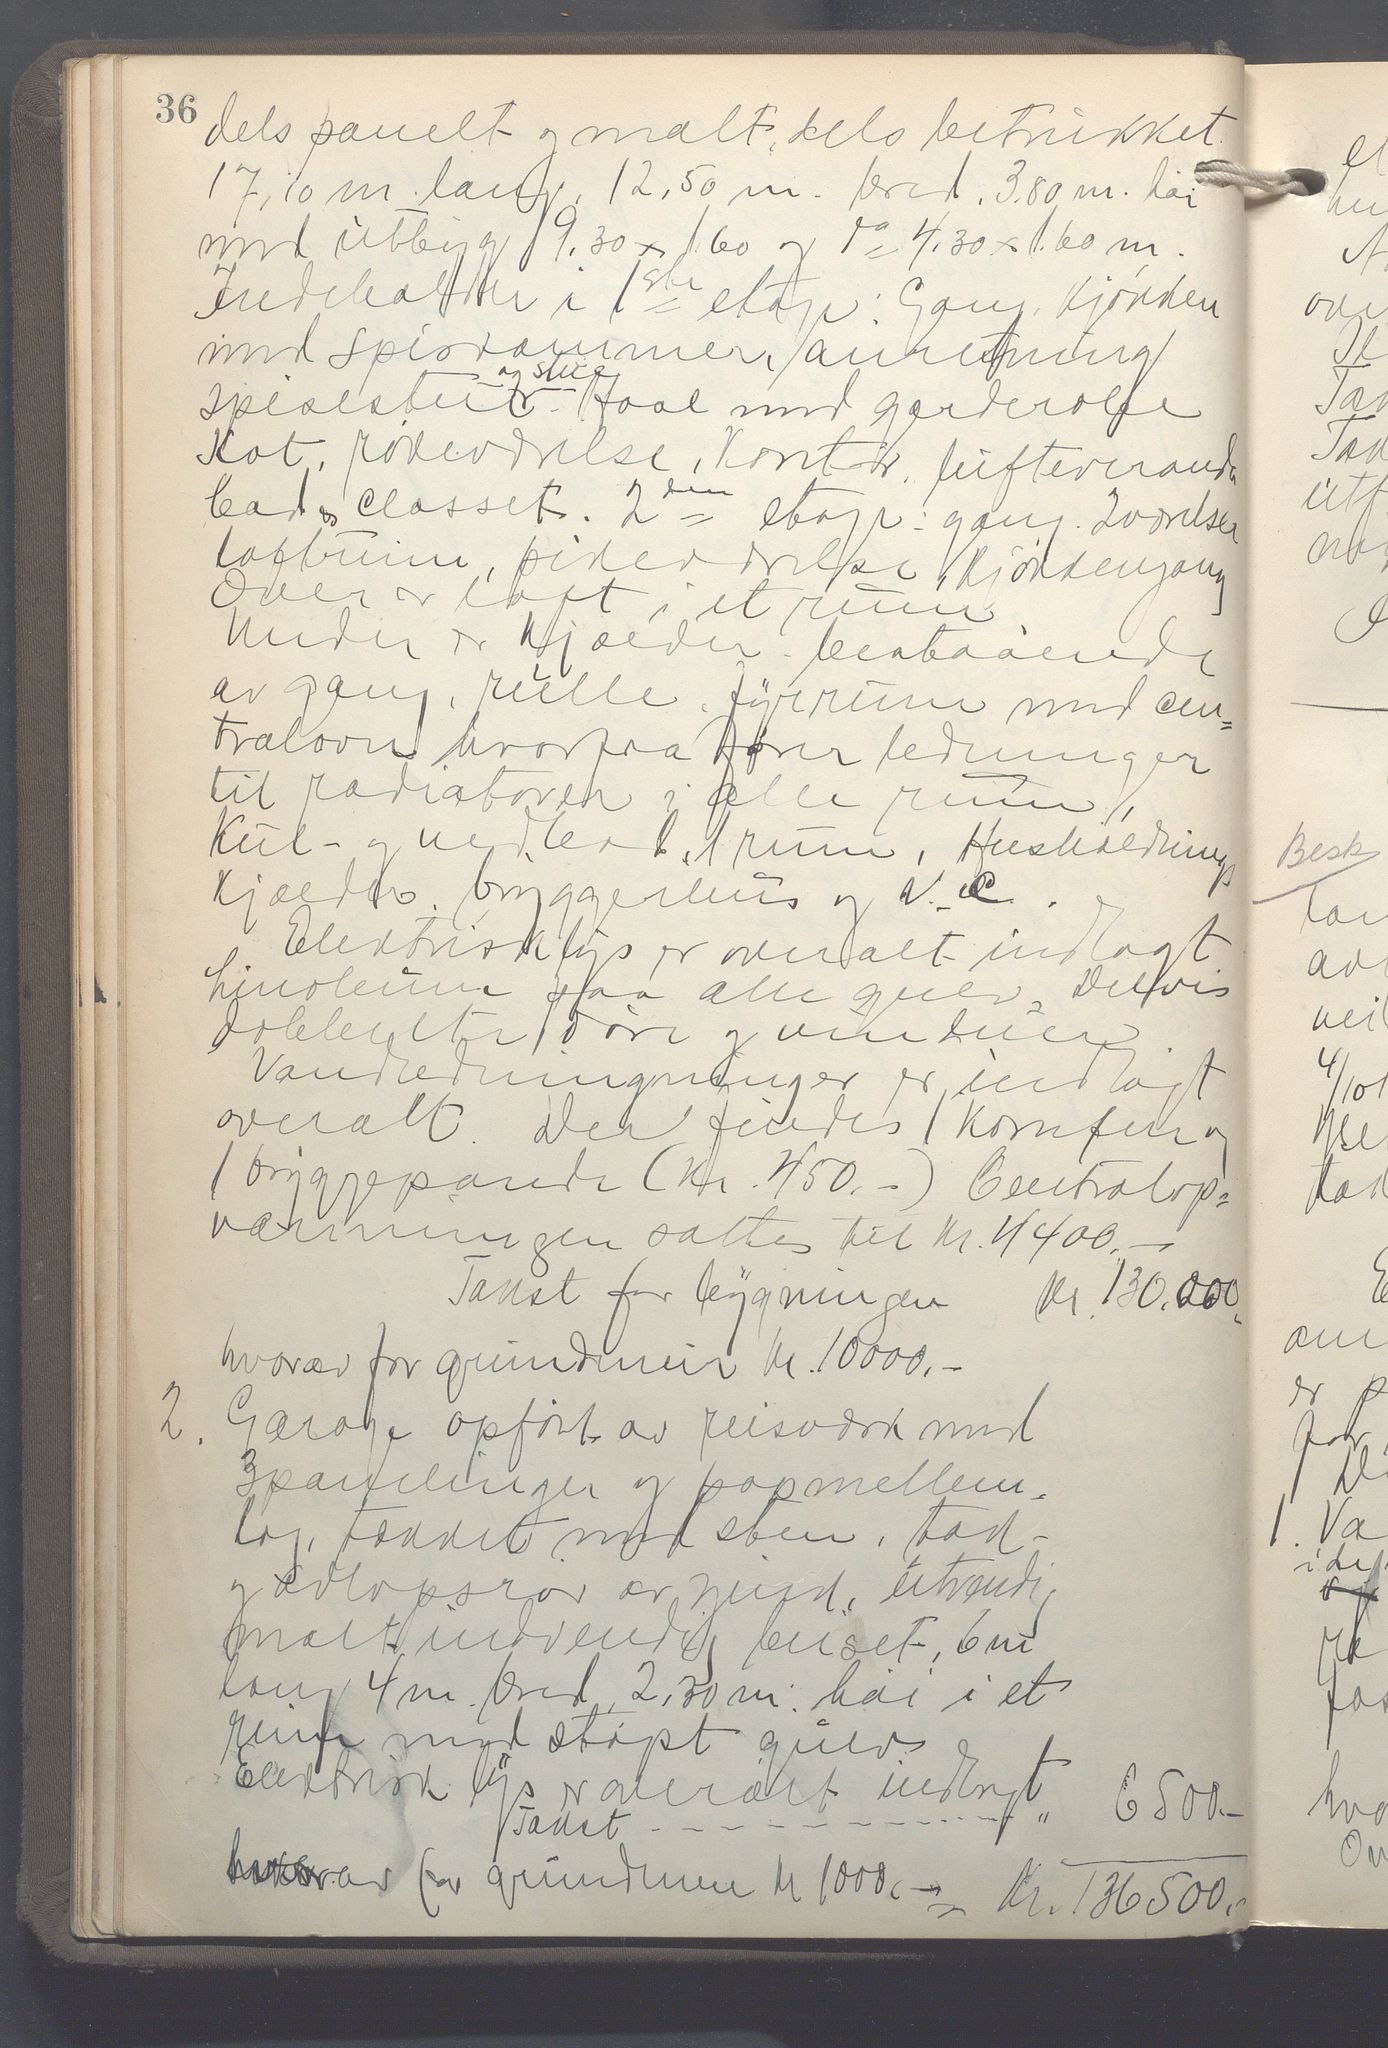 36
dels panelt og malt, dels betrukket.
17,10 m. lang, 12,50 m. bred, 3.80 m. høi
med utbyg 9,30 x 1.60 og do 4,30 x 1.60 m.
Indeholder i 1ste etage: Gang, Kjøkken
med spiskammer, anretning
og stue
spisestue Hall med garderobe
Kot, røkeværelse, Kontor, lufteveranda
bad & closset. 2den etage: gang. 2 værelser
loftrum, pikeværelse, Kjøkkengang
Over er loft i et rum
Under er Kjælder bestaaende
av gang, rulle, fyrrum med cen=
tralovn hvorfra fører ledninger
til radiatorer i alle rum,
Kul- og vedbod, 1 rum, Husholdnings
kjælder, bryggerhus og V.C.
Elektrisk lys er overalt indlagt
Linoleum paa alle gulv. Delvis
dobbelte døre og vinduer
Vandledningninger er indlagt
overalt. Der findes 1 Komfur og
1 bryggepande (Kr. 450.-) Centralop=
varmningen sattes til Kr. 4400.-
Takst for bygningen Kr. 130.000.
hvorav for grundmur Kr. 10000.-
2. Garage opført av reisværk med
3 panelinger og papmellem-
lag, tækket med sten, tak-
og avløpsrør av zink, utvendig
malt indvendig beiset, 6 m
lang 4 m. bred, 2,30 m. høi i et
rum med støpt gulv
Elektrisk lys er overalt indlagt
Takst - - - - - - - - - " 6500.-
hvorav for grundmur Kr 1000.-
Kr. 136500.-
Besk
4/10
1. Va